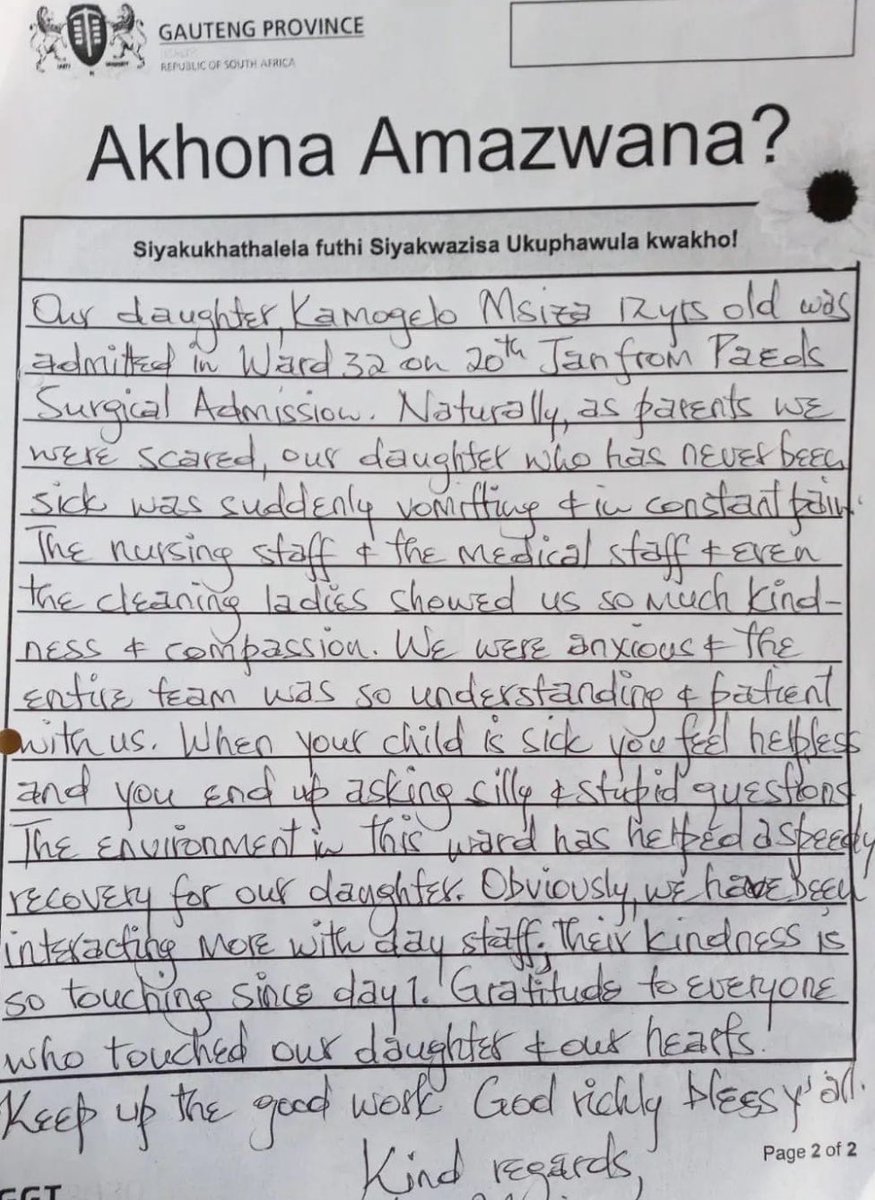 GAUTENG PROVINCE
REPUBLIC OF SOUTH AFRICA
Akhona Amazwana?
Siyakukhathalela futhi Siyakwazisa Ukuphawula kwakho!
Our daughter, Kamogelo Msiza 12yrs old was
admitted in Ward 32 on 20th Jan from Paeds
Surgical Admission. Naturally, as parents we
were scared, our daughter who has never been
sick was suddenly vomitting & in constant pain.
The nursing staff & the medical staff & even
the cleaning ladies showed us so much kind-
ness & compassion. We were anxious & the
entire team was so understanding & patient
with us. When your child is sick you feel helpless
and you end up asking silly & stupid questions
The environment in this ward has helped a speedy
recovery for our daughter. Obviously, we have been
interacting more with day staff. Their kindness is
so touching since day 1. Gratitude to everyone
who touched our daughter & our hearts.
Keep up the good work God richly bless y'all.
Page 2 of 2
Kind regards,